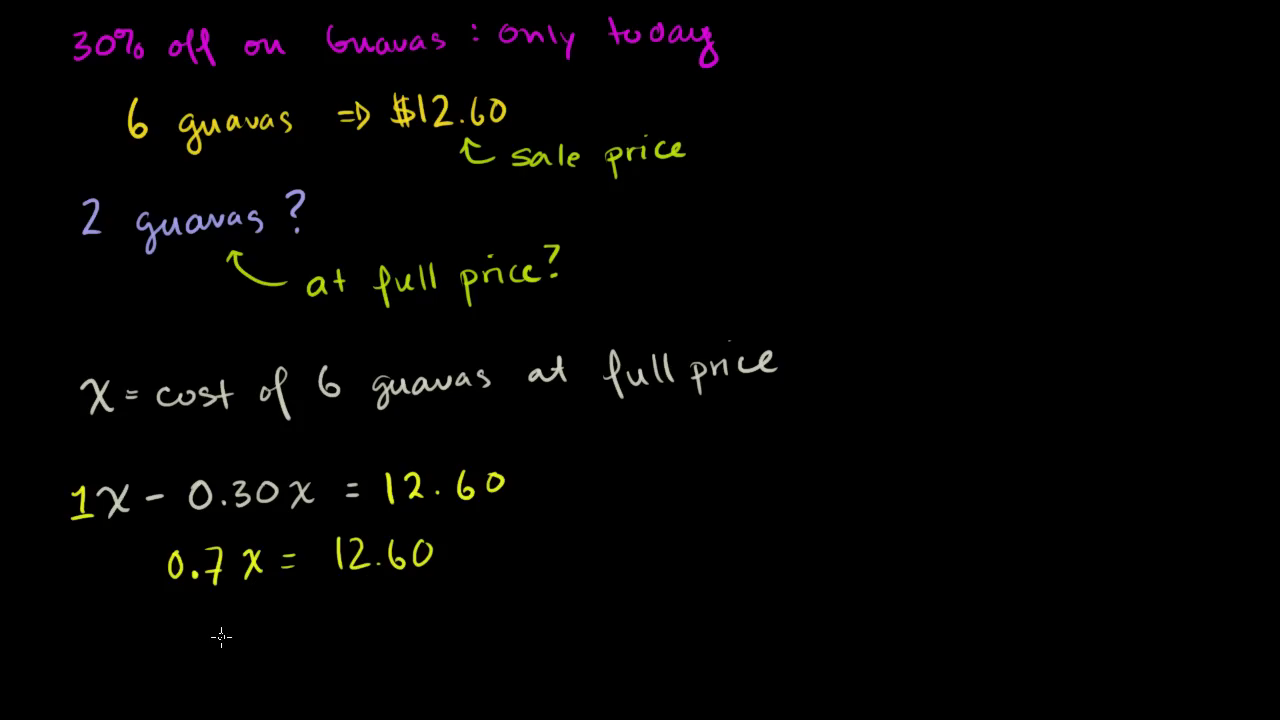 30% off on Guavas : only today
6 guavas ⇒ $12.60
sale price
2 guavas ?
at full price?
x = cost of 6 guavas at full price
1x - 0.30x = 12.60
0.7x = 12.60